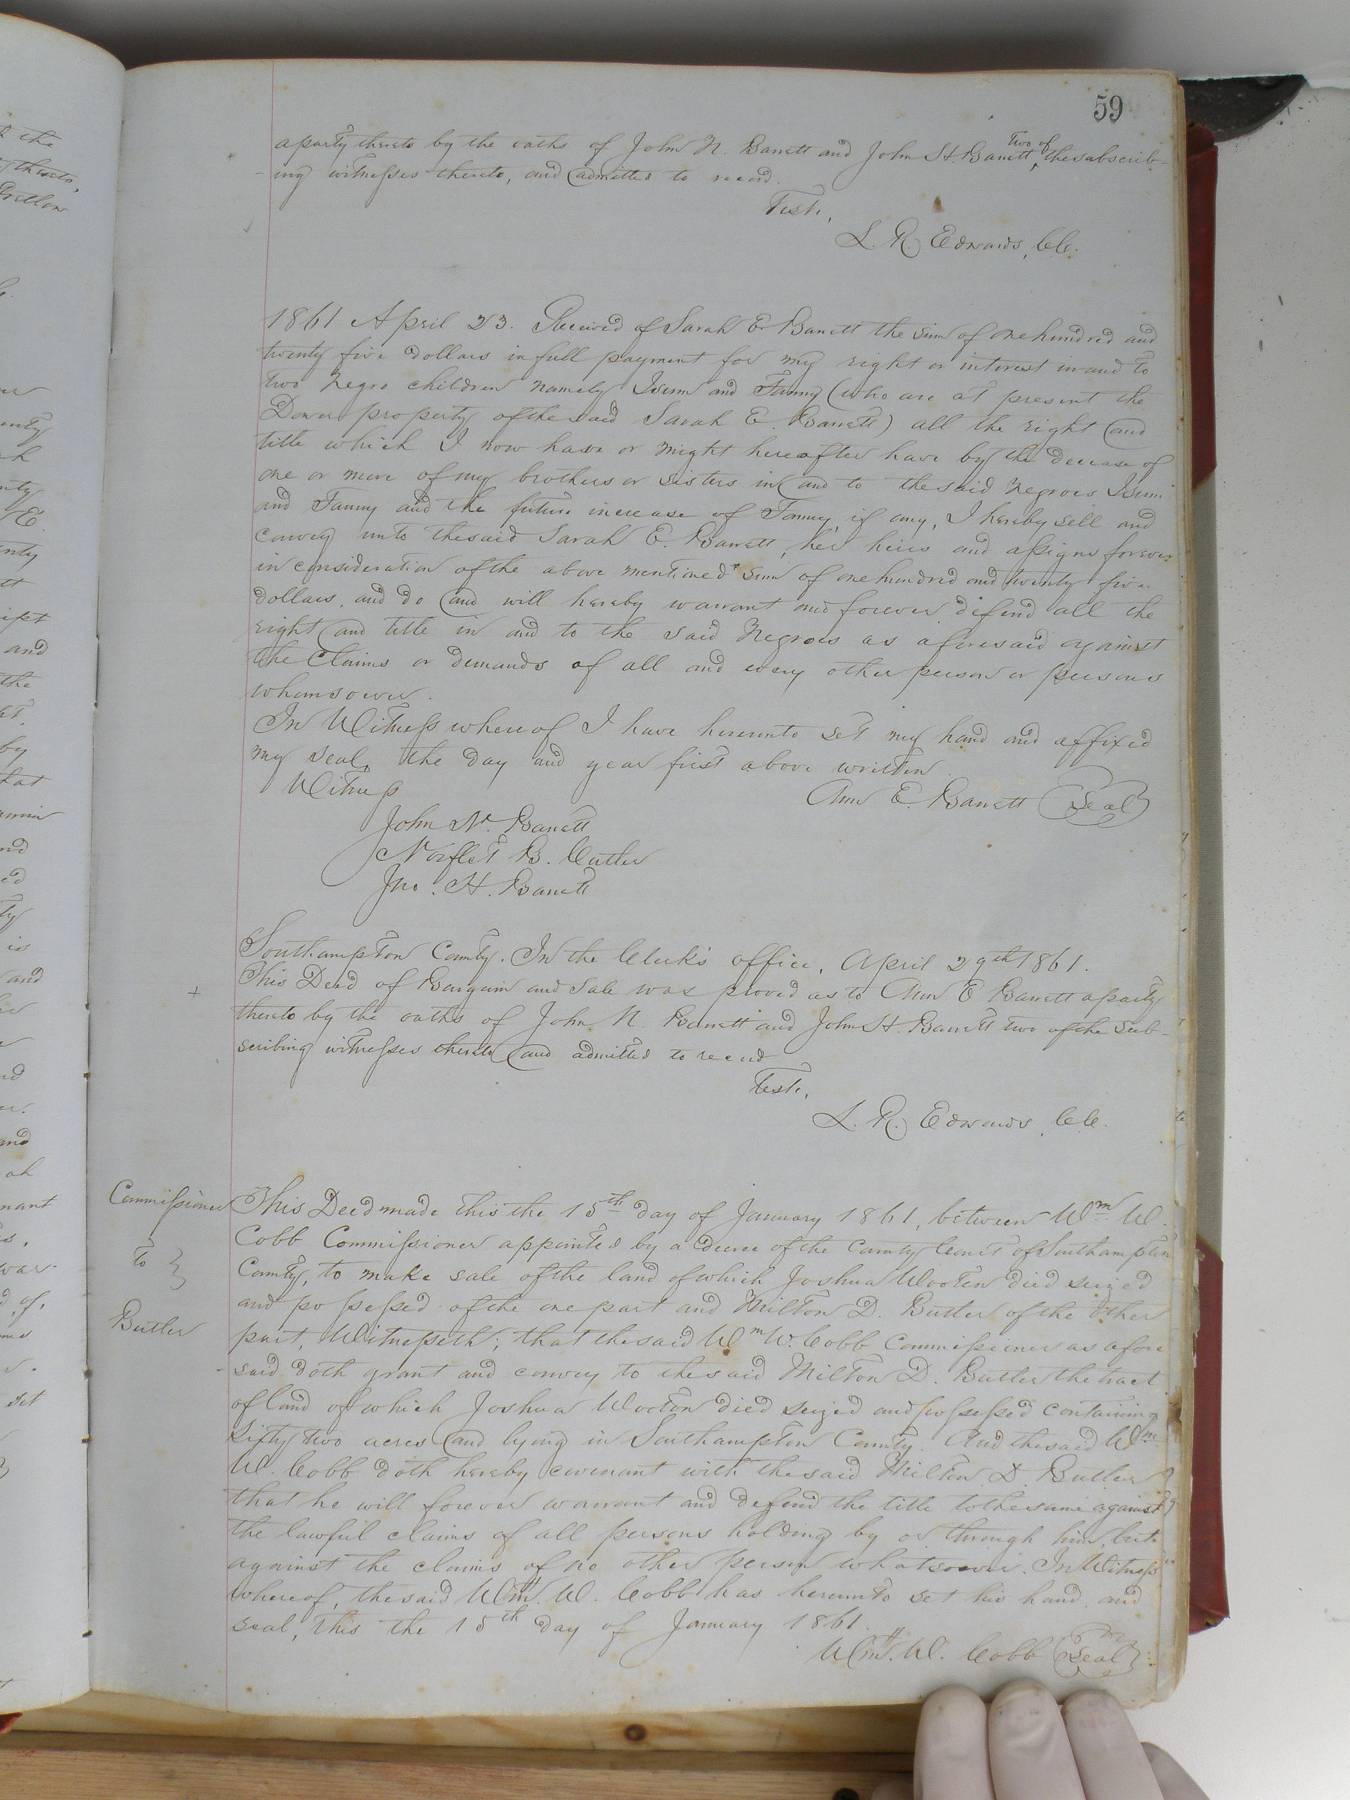 59
a party thereto by the oaths of John N. Barrett and John H Barrett, two of the subscrib-
ing witnesses thereto, and admitted to record.
Teste,
L. R. Edwards, CC.
1861 April 23. Received of Sarah E Barrett the sum of one hundred and
twenty five dollars in full payment for my right or interest in and to
two negro children namely Isum and Fanny (who are at present the
Dower property of the said Sarah E. Barrett) all the right and
title which I now have or might hereafter have by the decease of
one or more of my brothers or sisters in and to the said negroes Isum
and Fanny and the future increase of Fanny, if any, I hereby sell and
convey unto the said Sarah E. Barrett, her heirs and assigns forever
in consideration of the above mentioned sum of one hundred and twenty five
dollars, and do and will hereby warrant and forever defend all the
right and title in and to the said negroes as aforesaid against
the claims or demands of all and every other person or persons
whomsoever.
In Witness whereof I have hereunto set my hand and affixed
my seal, the day and year first above written.
Witness
Ann E. Barrett (Seal)
John N. Barrett
Norflet B. Cutler
Jno. H. Barrett
Southampton County. In the Clerk's office, April 29th 1861.
This Deed of Bargain and Sale was proved as to Ann E Barrett a party
thereto by the oaths of John N. Barrett and John H. Barrett two of the sub-
scribing witnesses thereto and admitted to record
Teste,
L. R. Edwards, CC.
Commissioner
To
Butler
This Deed made this the 15th day of January 1861, between Wm W.
Cobb Commissioner appointed by a decree of the County Court of Southampton
County, to make sale of the land of which Joshua Wooten died seized
and possessed of the one part and Milton D. Butler of the other
part, Witnesseth; that the said Wm W. Cobb Commissioner as afore
said doth grant and convey to the said Milton D. Butler the tract
of land of which Joshua Wooten died seized and possessed containing
sixty two acres and lying in Southampton County. And the said Wm
W. Cobb doth hereby covenant with the said Milton D Butler
that he will forever warrant and defend the title to the same against
the lawful claims of all persons holding by or through him, but
against the claims of no other person whatsoever. In Witness
whereof, the said Wm. W. Cobb has hereunto set his hand and
seal, this the 15th day of January 1861.
Wm. W. Cobb (Seal)